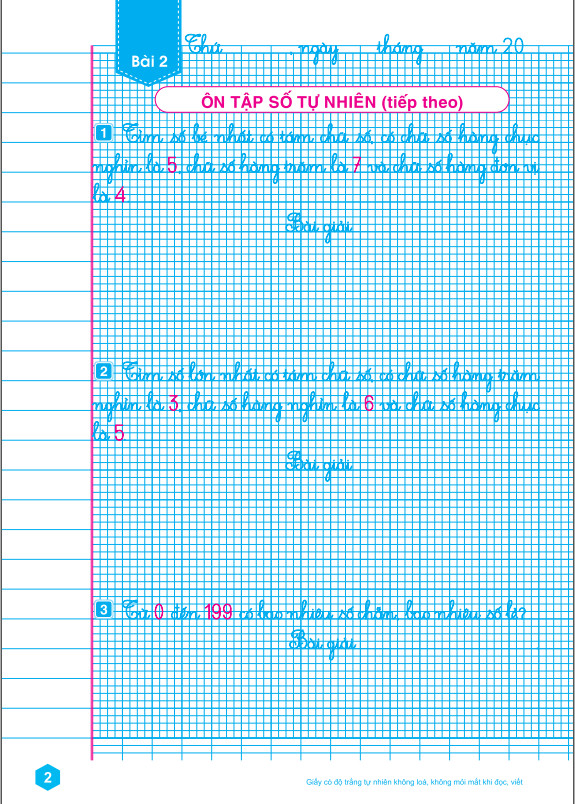 Bài 2
Thứ ngày tháng năm 20
ÔN TẬP SỐ TỰ NHIÊN (tiếp theo)
1 Tìm số bé nhất có tám chữ số, có chữ số hàng chục
nghìn là 5, chữ số hàng trăm là 7 và chữ số hàng đơn vị
là 4.
Bài giải
2 Tìm số lớn nhất có tám chữ số, có chữ số hàng trăm
nghìn là 3, chữ số hàng nghìn là 6 và chữ số hàng chục
là 5.
Bài giải
3 Từ 0 đến 199 có bao nhiêu số chẵn, bao nhiêu số lẻ?
Bài giải
2
Giấy có độ trắng tự nhiên không loá, không mỏi mắt khi đọc, viết